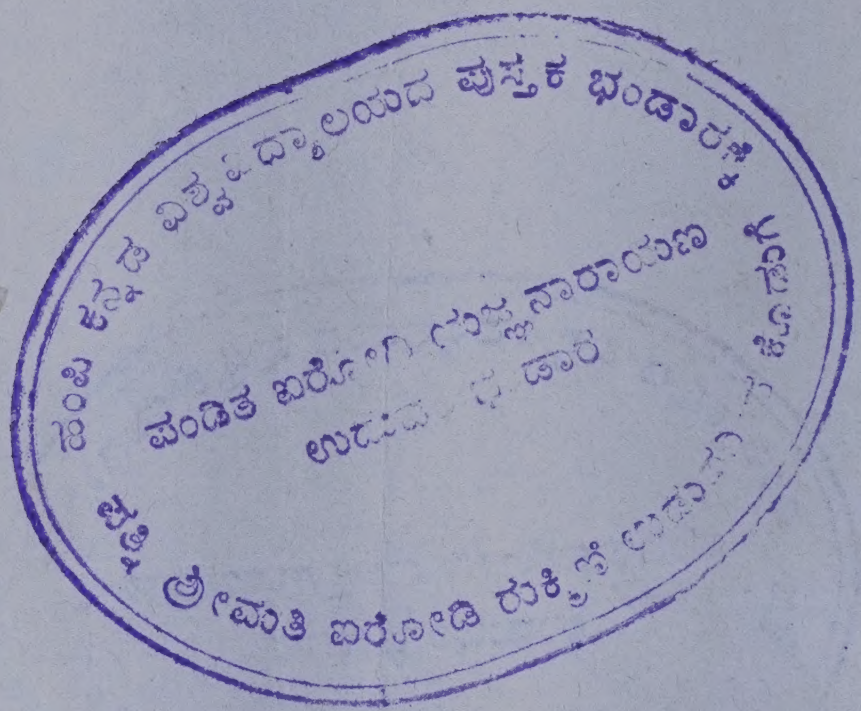 ಹಂಪಿ ಕನ್ನಡ ವಿಶ್ವವಿದ್ಯಾಲಯದ ಪುಸ್ತಕ ಭಂಡಾರಕ್ಕೆ
ಪಂಡಿತ ಐರೋಡಿ ಯಜ್ಞನಾರಾಯಣ
ಉಡುಪ ಭಂಡಾರ
ಪತ್ನಿ ಶ್ರೀಮತಿ ಐರೋಡಿ ರುಕ್ಮಿಣಿ ಕೊಡುಗೆ